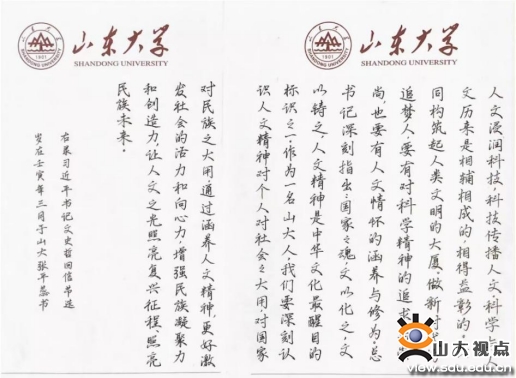 山东大学
SHANDONG UNIVERSITY
1901
SHANDONG UNIVERSITY
人文浸润科技,科技传播人文,科学与人
文历来是相辅相成的,相得益彰的,
同构筑起人类文明的大厦,做新时
追梦人,要有对科学精神的追求
尚,也要有人文情怀的涵养与修为,总
书记深刻指出:国家之魂,文以化之,文
以铸之,人文精神是中华文化最醒目的
标识之一,作为一名山大人,我们要深刻认
识人文精神对个人对社会之大用,对国家
山东大学
SHANDONG UNIVERSITY
1901
SHANDONG UNIVERSITY
对民族之大用通过涵养人文精神,更好激
发社会的活力和向心力,增强民族凝聚力
和创造力,让人文之光照亮复兴征程,照亮
民族未来。
右录习近平书记文史哲回信节选
岁在壬寅年三月于山大张平书
山大视点
www.view.sdu.edu.cn